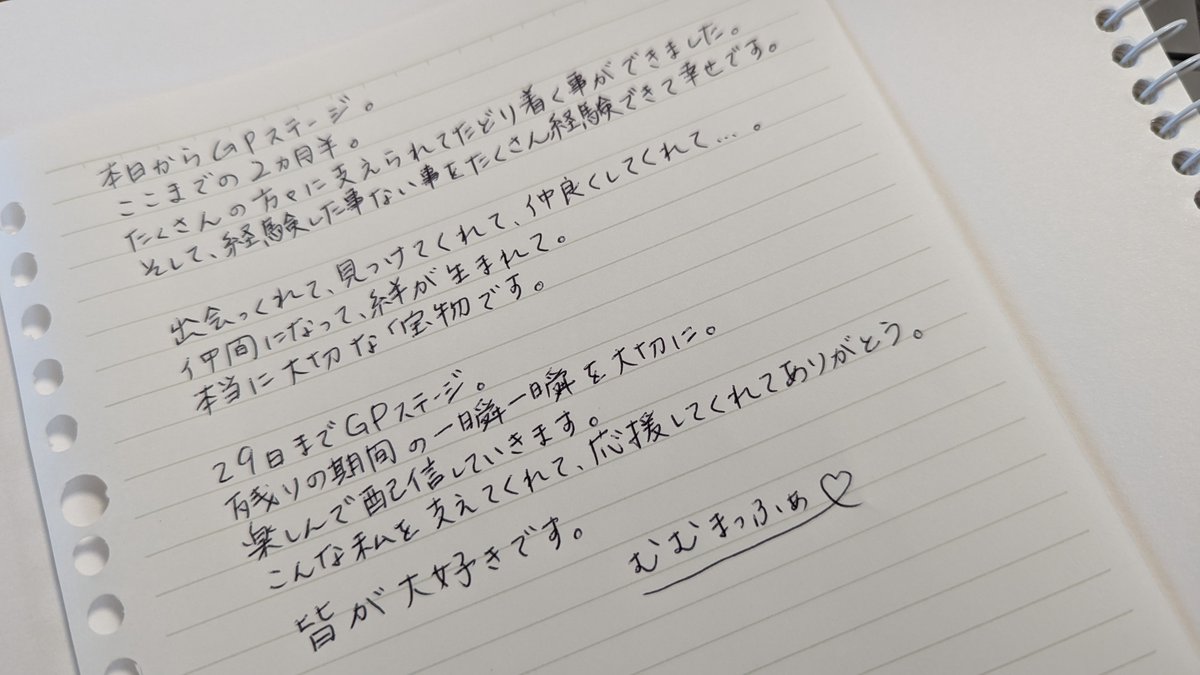 本日からGPステージ。
ここまでの2ヵ月半。
たくさんの方々に支えられてたどり着く事ができました。
そして、経験した事ない事をたくさん経験できて幸せです。
出会っくれて、見つけてくれて、仲良くしてくれて…。
仲間になって、絆が生まれて。
本当に大切な宝物です。
29日までGPステージ。
残りの期間の一瞬一瞬を大切に。
楽しんで配信していきます。
こんな私を支えてくれて、応援してくれてありがとう。
皆が大好きです。
むむまっふぁ♡